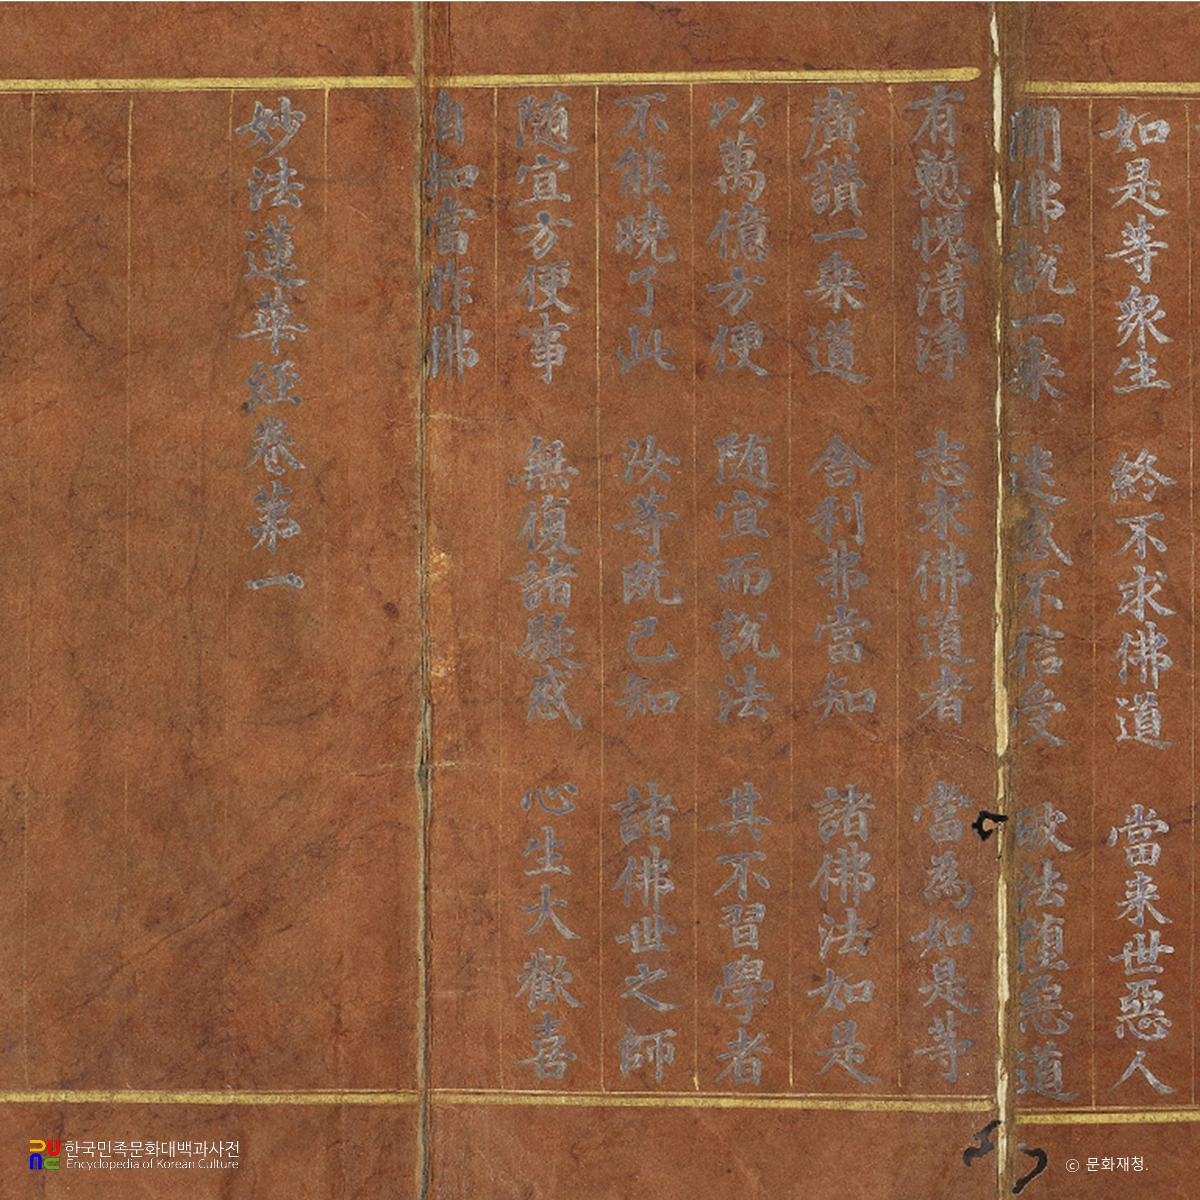 如是等衆生 終不求佛道 當来世惡人
聞佛說一乘 迷惑不信受 破法堕惡道
有慙愧清淨 志求佛道者 當為如是等
廣讃一乘道 舎利弗當知 諸佛法如是
以萬億方便 随宜而說法 其不習學者
不能曉了此 汝等既已知 諸佛世之師
随宜方便事 無復諸疑惑 心生大歡喜
自知當作佛
妙法蓮華經卷苐一
한국민족문화대백과사전
Encyclopedia of Korean Culture
ⓒ 문화재청.